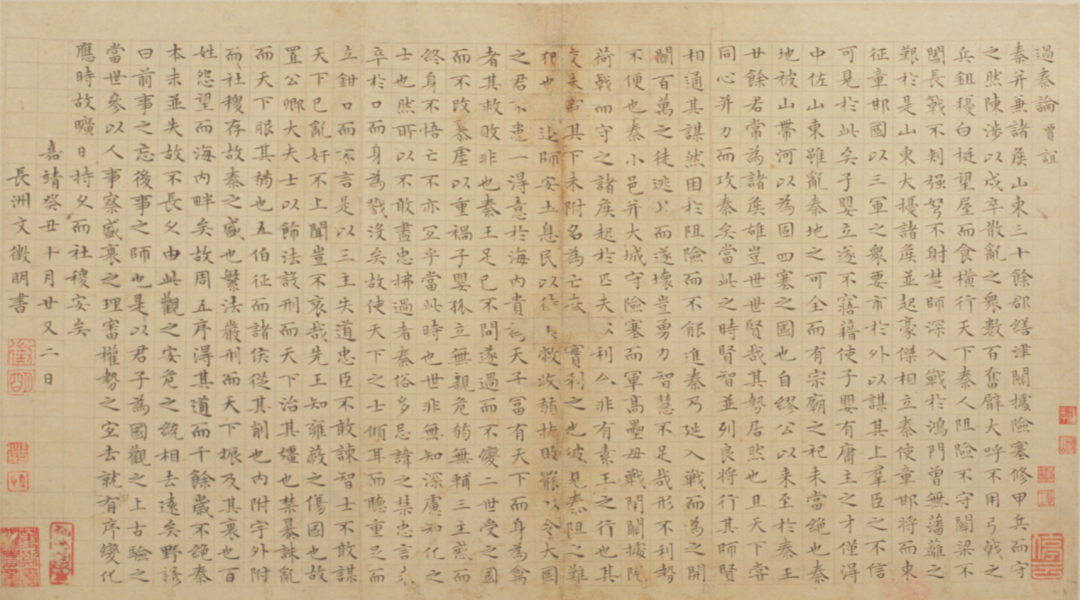 過秦論 賈誼
秦并兼諸侯山東三十餘郡繕津關據險塞修甲兵而守
之然陳涉以戍卒散亂之衆數百奮臂大呼不用弓戟之
兵鉏耰白梃望屋而食橫行天下秦人阻險不守關梁不
闔長戟不刺强弩不射楚師深入戰於鴻門曾無藩籬之
艱於是山東大擾諸侯並起豪傑相立秦使章邯將而東
征章邯因以三軍之衆要市於外以謀其上羣臣之不信
可見於此矣子嬰立遂不寤藉使子嬰有庸主之才僅得
中佐山東雖亂秦地之可全而有宗廟之祀未當絶也秦
地被山帶河以為固四塞之國也自繆公以來至於秦王
廿餘君常為諸侯雄豈世世賢哉其勢居然也且天下嘗
同心并力而攻秦矣當此之時賢智並列良將行其師賢
相通其謀然困於阻險而不能進秦乃延入戰而為之開
關百萬之徒逃北而遂壞豈勇力智慧不足哉形不利勢
不便也秦小邑并大城守險塞而軍高壘毋戰閉關據阨
荷戟而守之諸侯起於匹夫以利合非有素王之行也其
交未親其下未附名為亡秦實利之也彼見秦阻之難
犯也 退師安土息民以待 救收弱扶罷以令大國
之君不患一得意於海內貴為天子富有天下而身為禽
者其救敗非也秦王足已不問遂過而不變二世受之因
而不改暴虐以重禍子嬰孤立無親危弱無輔三主惑而
終身不悟亡不亦宜乎當此時也世非無知深慮知化之
士也然所以不敢盡忠拂過者秦俗多忌諱之禁忠言
卒於口而身為戮没矣故使天下之士傾耳而聽重足而
立鉗口而不言是以三主失道忠臣不敢諫智士不敢謀
天下已亂奸不上聞豈不哀哉先王知雍蔽之傷國也故
置公卿大夫士以飾法設刑而天下治其彊也禁暴誅亂
而天下服其弱也五伯征而諸侯從其削也內附字外附
而社稷存故秦之盛也繁法嚴刑而天下振及其衰也百
姓怨望而海內畔矣故周五序得其道而千餘歲不絶秦
本末並失故不長久由此觀之安危之統相去遠矣野諺
曰前事之忘後事之師也是以君子為國觀之上古驗之
當世參以人事察盛衰之理審權勢之宜去就有序變化
應時故曠日持久而社稷安矣
嘉靖癸丑十月廿又二日
長洲文徵明書